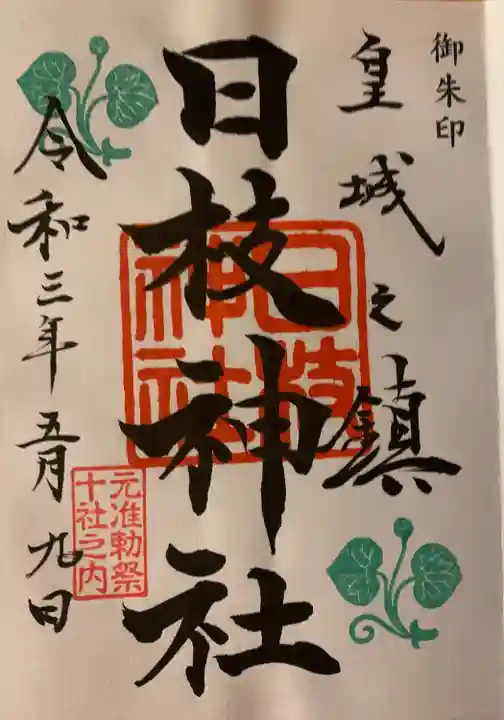 御朱印
皇城之鎮
日枝神社
日枝
神社
元准勅祭
十社之内
令和三年五月九日